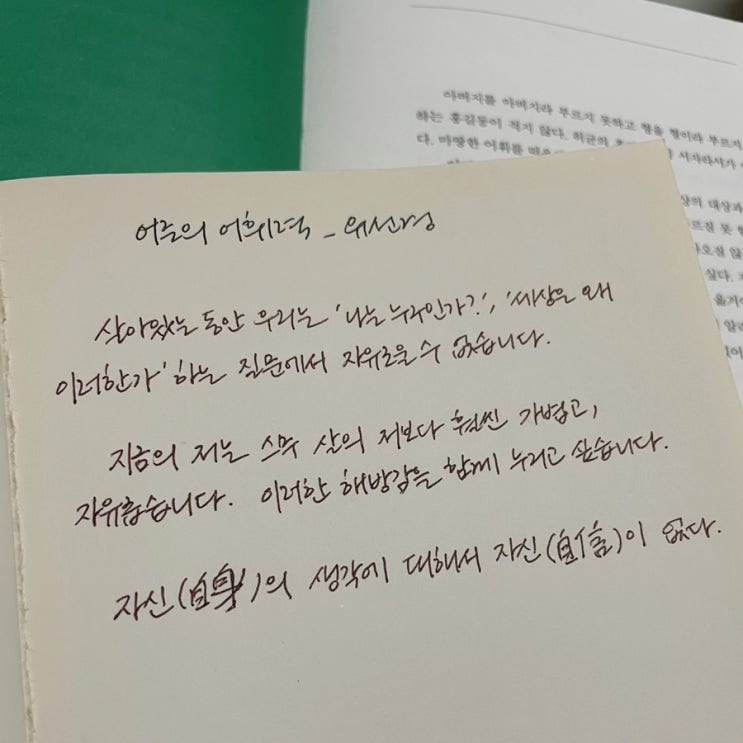 아버지를 아버지라 부르지 못하고 형을 형이라 부르지
하는 홍길동이 적지 않다. 허균의 서자라서가
다. 마땅한 어휘를
상의 대상과
르질 못
오질 않
싶다.
어른의 어휘력 - 유선경
살아있는 동안 우리는 '나는 누구인가?', '세상은 왜
이러한가' 하는 질문에서 자유로울 수 없습니다.
지금의 저는 스무 살의 저보다 훨씬 가볍고,
자유롭습니다. 이러한 해방감을 함께 누리고 싶습니다.
자신(自身)의 생각에 대해서 자신(自信)이 없다.